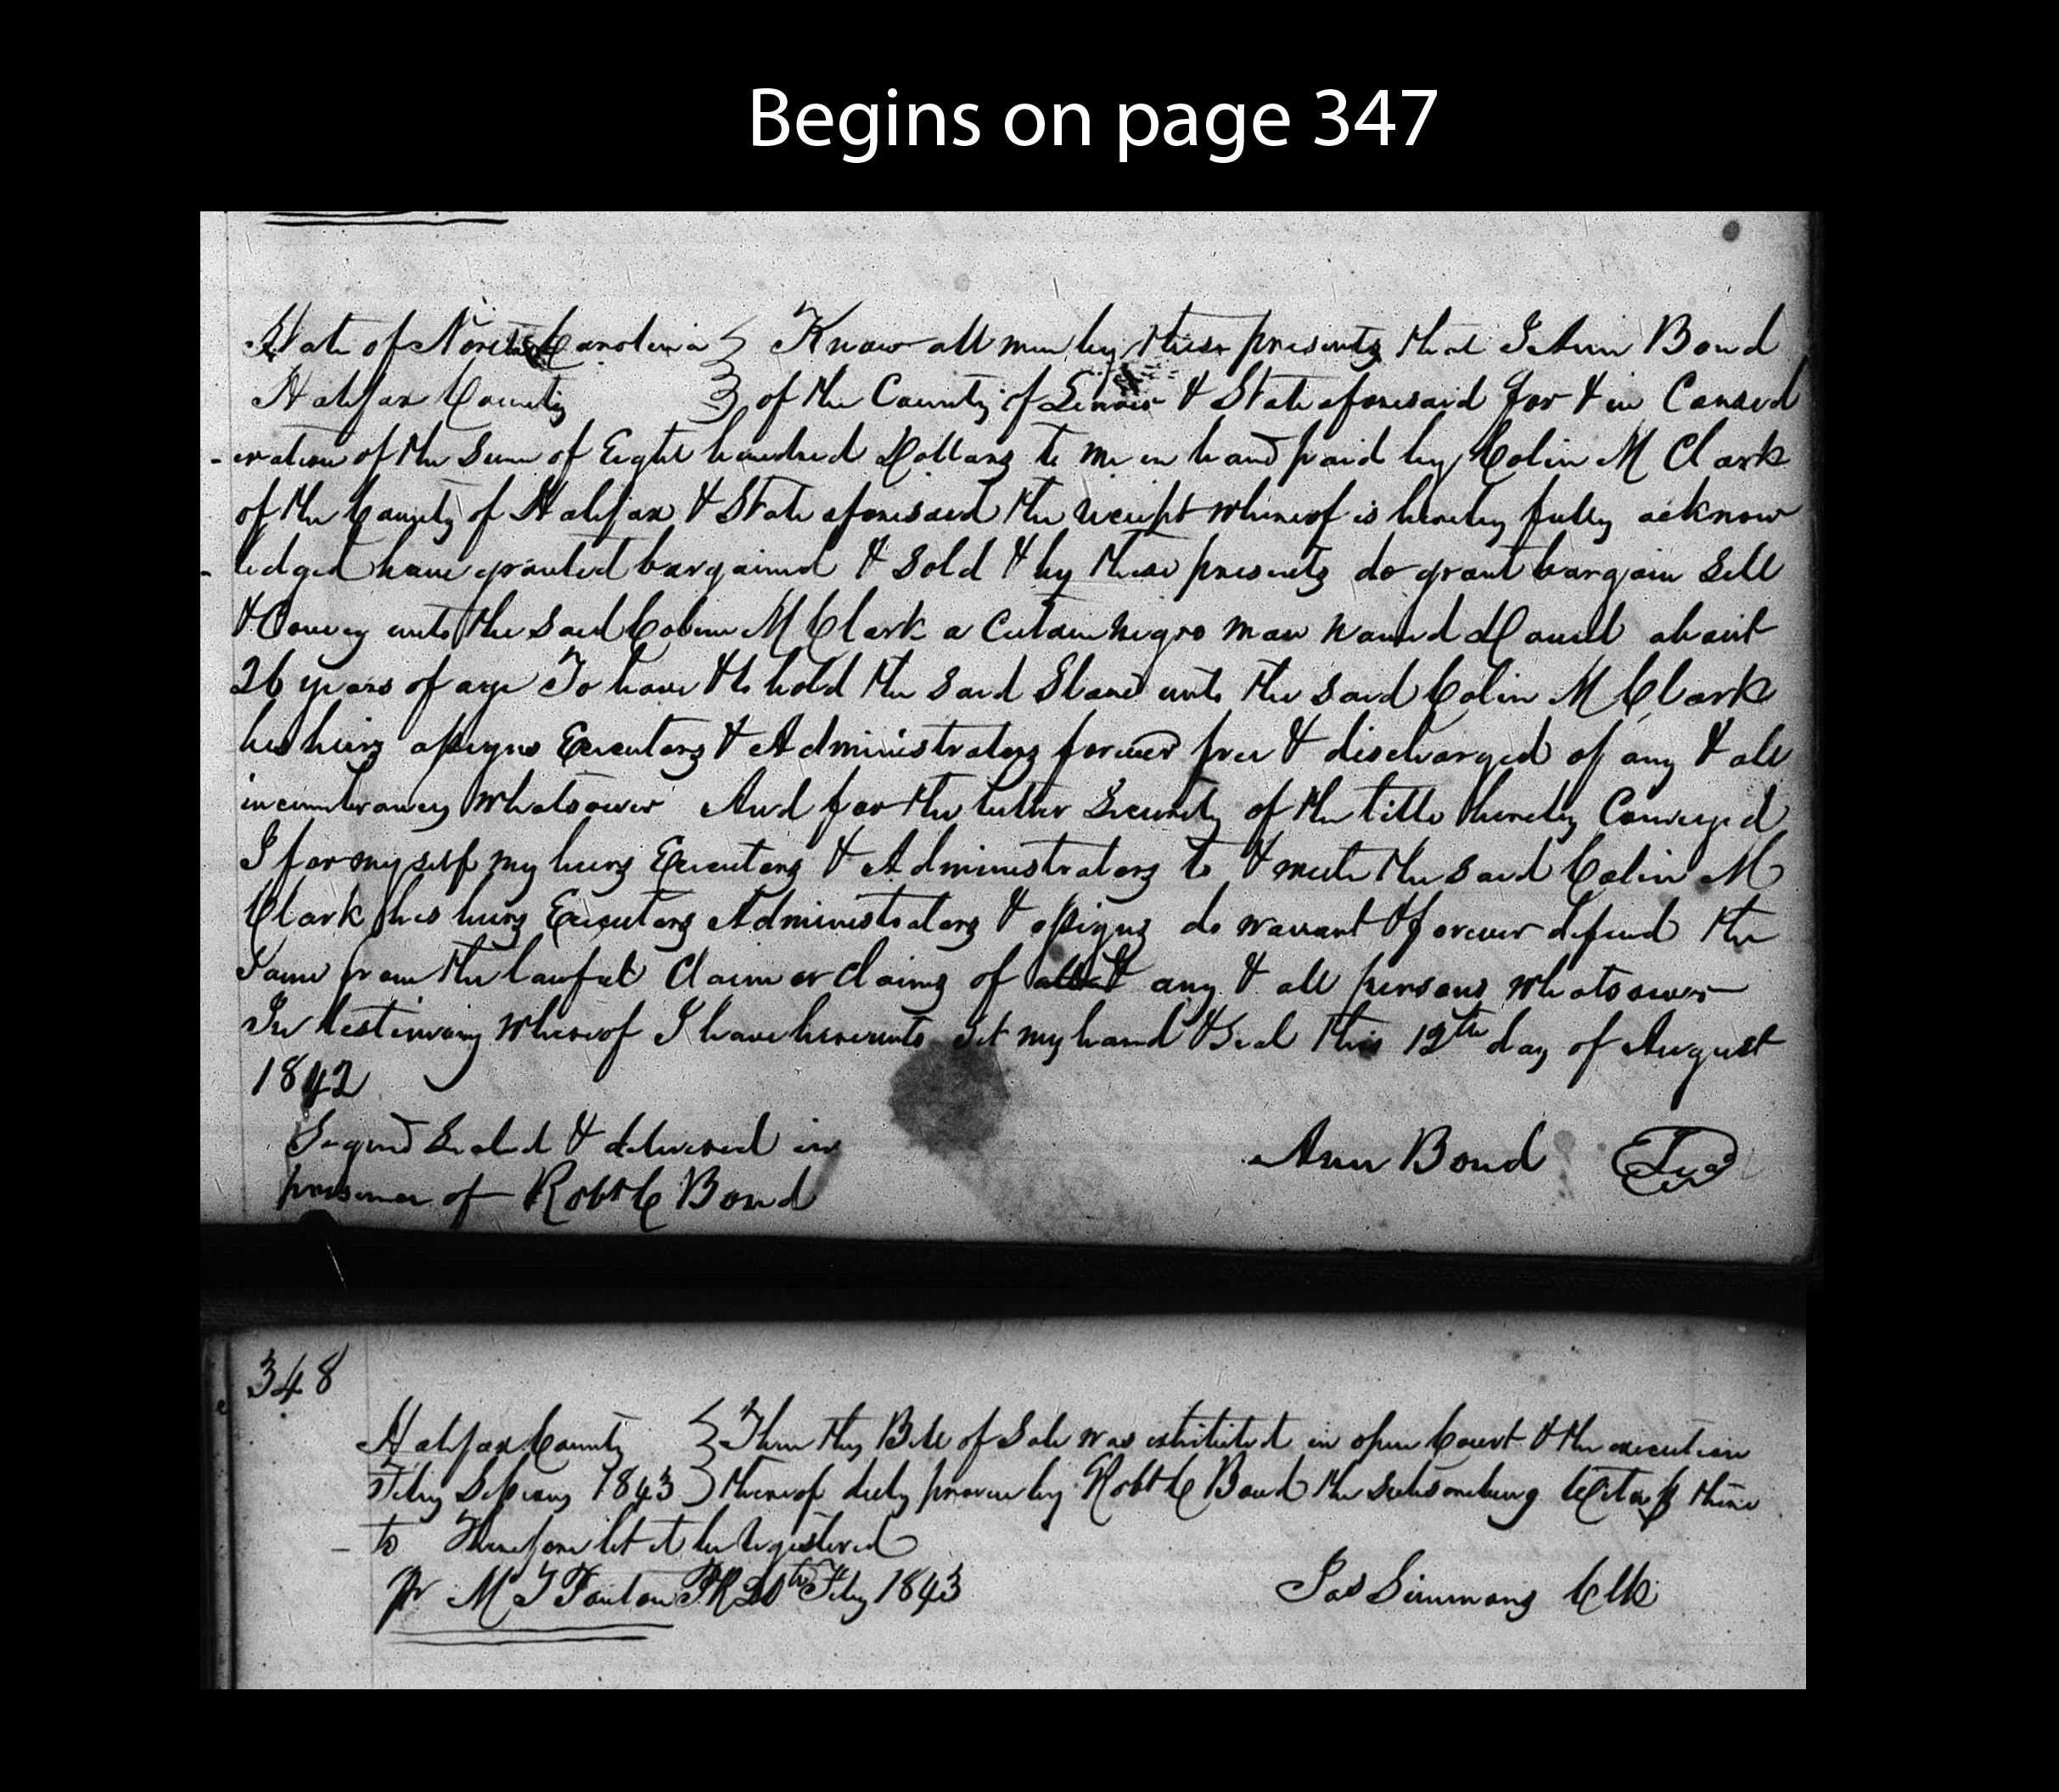 Begins on page 347
State of North Carolina } Know all men by these presents that I Ann Bond
Halifax County } of the County of Lenoir & State aforesaid for & in Consid
-eration of the Sum of Eight hundred Dollars to me in hand paid by Colin M Clark
of the County of Halifax & State aforesaid the receipt whereof is hereby fully acknow
-ledged have granted bargained & Sold & by these presents do grant bargain Sell
& Convey unto the Said Colin M Clark a Certain negro man named Daniel about
26 years of age To have & to hold the said Slave unto the said Colin M Clark
his heirs assigns Executors & Administrators forever free & discharged of any & all
incumbrances whatsoever And for the better Security of the title hereby Conveyed
I for myself my heirs Executors & Administrators to & with the said Colin M
Clark his heirs Executors Administrators & assigns do warrant & forever defend the
Same from the lawful Claim or claims of any & all persons whatsoever
In testimony whereof I have hereunto Set my hand & Seal this 12th day of August
1842
Signed Sealed & delivered in
presence of Robt C Bond
Ann Bond Seal
348
Halifax County } Then this Bill of Sale was exhibited in open Court & the execution
Feby Sessions 1843 } thereof duly proven by Robt C Bond the subscribing Witness there
- to Therefore let it be registered
Pr M T Ponton P.R 20th Feby 1843
Jas Simmons Clk